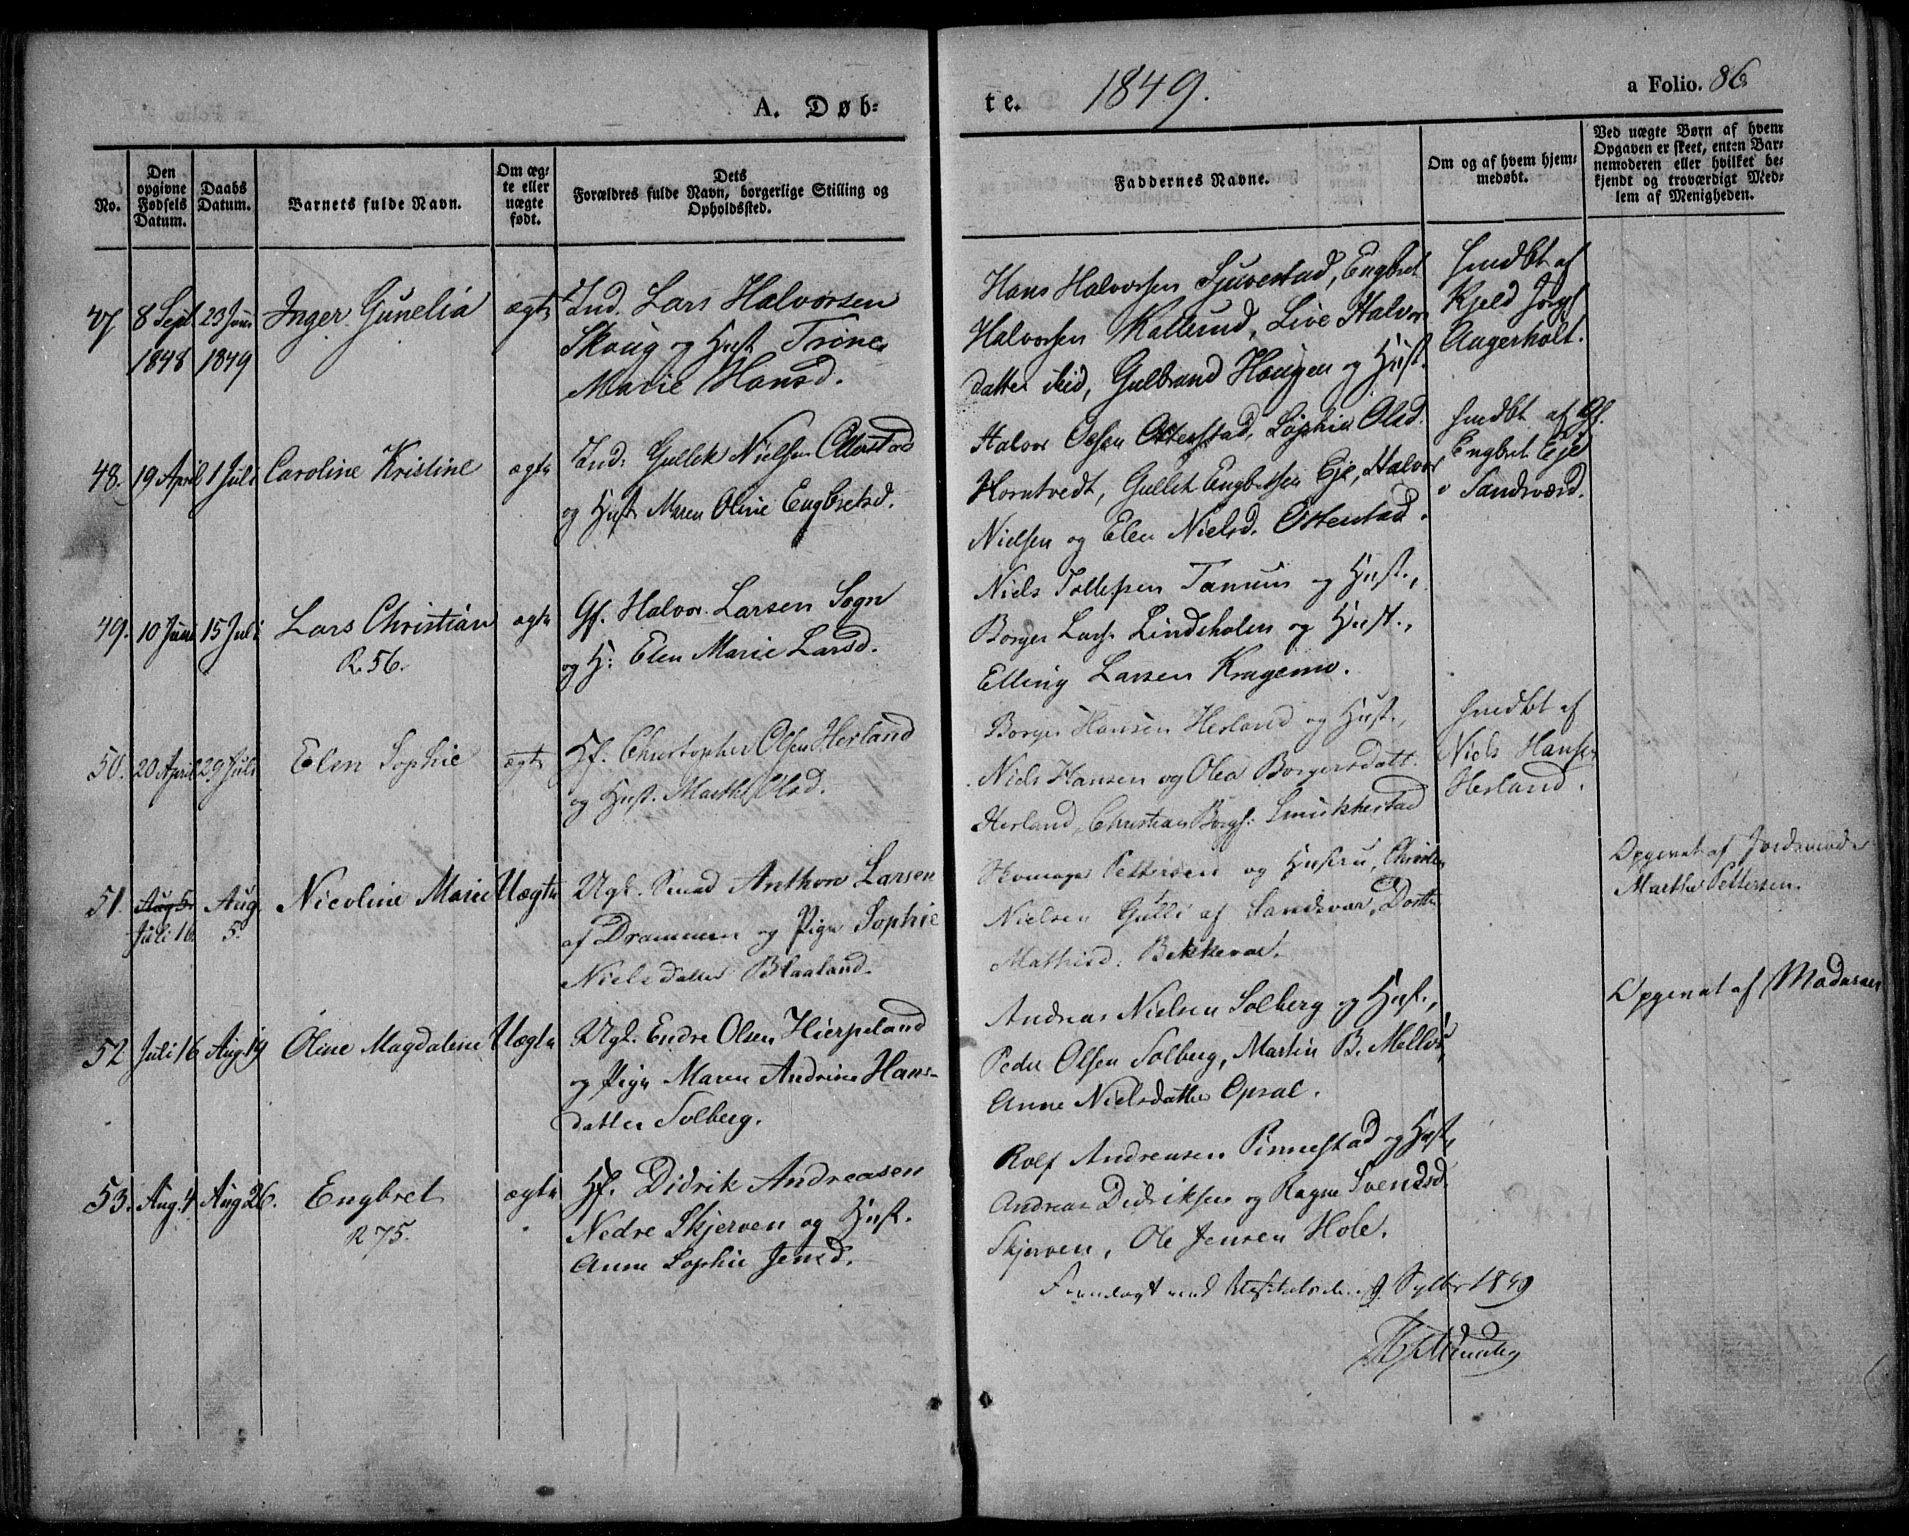 A. Døb-
te. 1849.
a Folio. 86
No.
Den opgivne Fødsels Datum.
Daabs Datum.
Barnets fulde Navn.
Om ægte eller uægte født.
Dets
Forældres fulde Navn, borgerlige Stilling og
Opholdssted.
Faddernes Navne.
Om og af hvem hjem-
medøbt.
Ved uægte Børn af hvem
Opgaven er skeet, enten Bar-
nemoderen eller hvilket be-
kjendt og troværdigt Med-
lem af Menigheden.
47 8 Sept 1848 23 Juni 1849 Inger Gunelia ægte
Ind. Lars Halvorsen
Skoug og Hust. Trine
Marie Hansd.
Hans Halvorsen Engbret
Halvorsen Live Halvors
datter ibid, Gulbrand Haugen og Hust.
hmdbt af
Kjeld Jørgs
Aagerholt.
48. 19 April 1 Juli Caroline Kristine ægte
Ind: Gullek Nielsen Otterstad
og Hust. Maren Oline Engbretsd.
Halvor Olsen Otterstad, Sophie Olsd.
Horntvedt, Gullek Engbretsen Eje, Halvor
Nielsen og Elen Nielsd. Otterstad.
hmdbt af Gf.
Engbret Eje
i Sandsværd.
49. 10 Juni 15 Juli Lars Christian ægte
R. 56.
Gf. Halvor Larsen Sogn
og H: Elen Marie Larsd.
Niels Tollefsen Tanum og Hust.,
Borger Lars. Lindsholm og Hust.,
Elling Larsen Kragemo.
50. 20 April 29 Juli Elen Sophie ægte
Hf. Christopher Olsen Herland
og Hust. Marthe Olsd.
Borger Hansen Herland og Hust.,
Niels Hansen og Olea Borgersdatt.
Herland, Christian Borgs: Smukkestad
hmdbt af
Niels Hansen
Herland.
51. Aug 5. Juli 16 Aug. 5. Nicoline Marie Uægte
Ugf. Smed Anthon Larsen
af Drammen og Pige Sophie
Nielsdatter Blaaland.
Skomager Pettersen og Hustru, Christen
Nielsen Gulli af Sandsvær, Dorthe
Mathisd. Bekkevar.
Opgivet af Jordemoder
Marthe Pettersen.
52 Juli 16 Aug. 19 Oline Magdaline Uægte
Ugf. Endre Olsen Hierpeland
og Pige Maren Andrine Hans-
datter Solberg.
Andreas Nielsen Solberg og Hust.,
Peder Olsen Solberg, Martin B.
Anne Nielsdatter Opsal.
Opgivet af
53. Aug. 4 Aug 26. Engbret ægte
R 75.
Hf. Didrik Andreasen
Nedre Skjerven og Hust.
Anne Sophie Jensd.
Rolf Andreasen Pinnestad og Hust.,
Andreas Didriksen og Ragne Svendsd.
Skjerven, Ole Jensen Hole.
Fremlagt ved Visitatsen